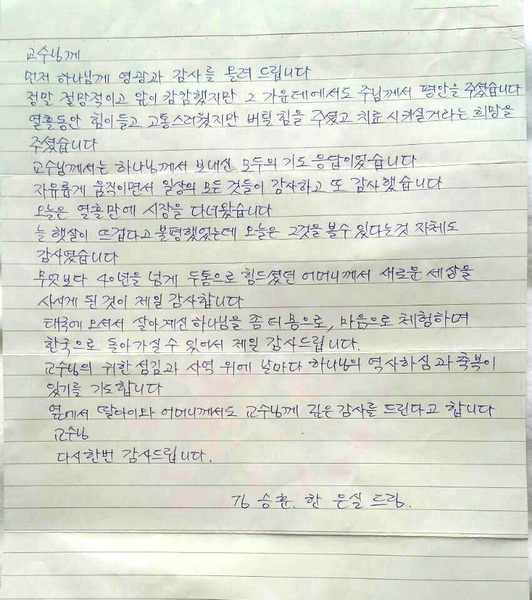 교수님께
먼저 하나님께 영광과 감사를 올려 드립니다
정말 절망적이고 앞이 캄캄했지만 그 가운데에서도 주님께서 평안을 주셨습니다
열흘동안 힘이들고 고통스러웠지만 버틸 힘을 주셨고 치료 시켜주실거라는 희망을
주셨습니다
교수님께서는 하나님께서 보내신 모두의 기도 응답이었습니다
자유롭게 움직이면서 일상의 모든 것들이 감사하고 또 감사했습니다
오늘은 열흘만에 시장을 다녀왔습니다
늘 햇살이 뜨겁다고 불평했었는데 오늘은 그것을 볼수 있다는것 자체도
감사했습니다
무엇보다 40년을 넘게 두통으로 힘드셨던 어머니께서 새로운 세상을
사시게 된 것이 제일 감사합니다
태국에 오셔서 살아계신 하나님을 좀 더 몸으로, 마음으로 체험하며
한국으로 돌아가실 수 있어서 제일 감사드립니다.
교수님의 귀한 섬김과 사역 위에 날마다 하나님의 역사하심과 축복이
있기를 기도합니다
옆에서 딸다이와 어머니께서도 교수님께 깊은 감사를 드린다고 합니다
교수님
다시한번 감사드립니다.
김 승훈. 한 은실 드림.